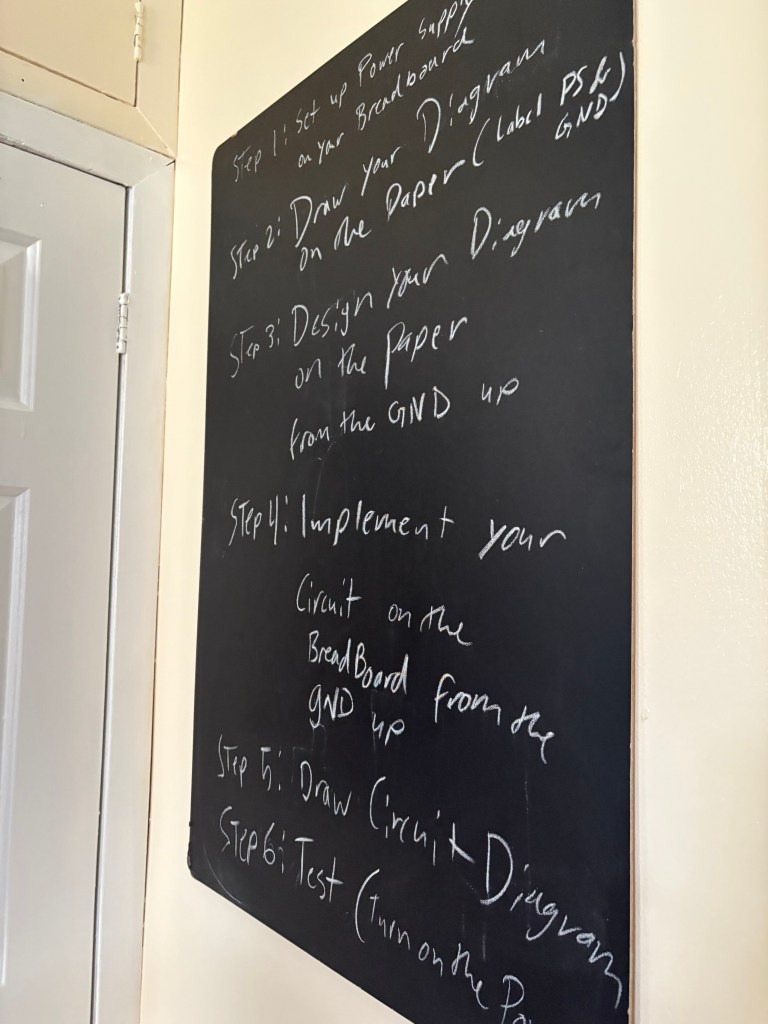 Step 1: Set up Power Supply
on your Breadboard
Step 2: Draw your Diagram
on the paper (Label PS &
GND)
Step 3: Design your Diagram
on the paper
from the GND up
Step 4: Implement your
Circuit on the
BreadBoard from the
GND up
Step 5: Draw Circuit Diagram
Step 6: Test (Turn on the